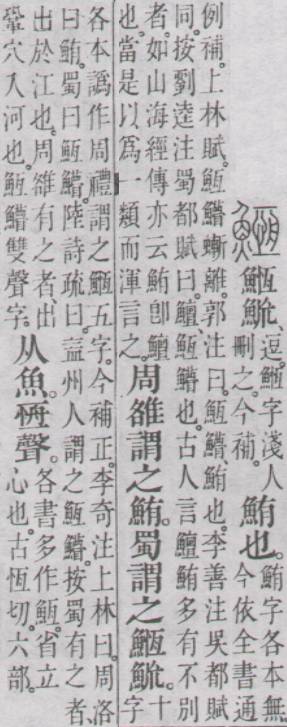 䱭䲛、逗。䱭字淺人刪之。今補。鮪也。鮪字各本無。今依全書通
例補。上林賦。䱎䲛螹離。郭注曰。䱎䲛、鮪也。李善注吳都賦同。按劉逵注蜀都賦曰。鱣䱎䲛也。古人言鱣鮪多有不別
者。如山海經傳亦云鮪卽鱣也。當是以爲一類而渾言之。周雒謂之鮪。蜀謂之䱭䲛。十字
各本譌作周禮謂之䱭五字。今補正。李奇注上林曰。周洛曰鮪。蜀曰䱎䲛。陸詩疏曰。益州人謂之䱎䲛。按蜀有之者、
出於江也。周雒有之者、出鞏穴入河也。䱎䲛雙聲字。从魚。恆聲。各書多作䱎。省立心也。古恆切。六部。